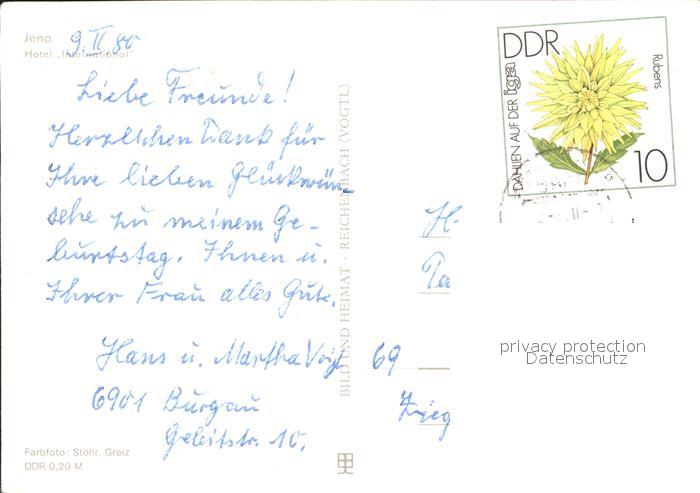 Jena
Hotel „International"
9. II 80
Liebe Freunde!
Herzlichen Dank für
Ihre lieben Glückwün-
sche zu meinem Ge-
burtstag. Ihnen u.
Ihrer Frau alles Gute.
Hans u. Martha Voigt
6901 Burgau
Geleitstr. 10.
Farbfoto: Stöhr, Greiz
DDR 0,20 M
BILD UND HEIMAT · REICHENBACH (VOGTL)
DDR
DAHLIEN AUF DER
Rubens
10
H.
Ta
69
Zieg
privacy protection
Datenschutz